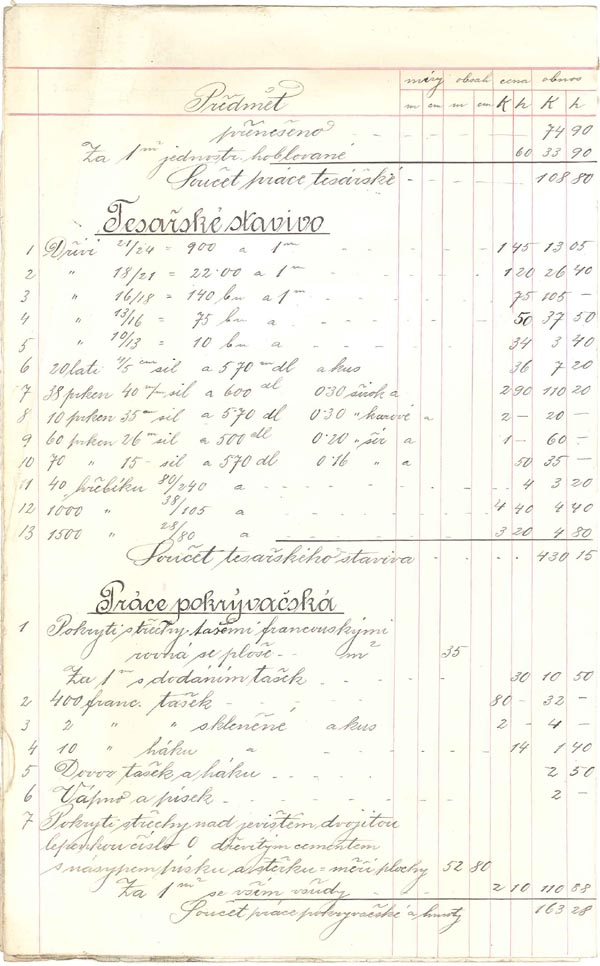 míry obsah cena obnos
Předmět m cm m cm K h K h
přenešeno - - - - - 74 90
Za 1 m² jednostr. hoblované 60 33 90
Součet práce tesařské - - - 108 80
Tesařské stavivo
1 Dříví 21/24 = 900 a 1 m - - - 1 45 13 05
2 " 18/21 = 22·00 a 1 m - - - 1 20 26 40
3 " 16/18 = 140 bm a 1 m - - - 75 105 -
4 " 13/16 = 75 bm a - - - 50 37 50
5 " 10/13 = 10 bm a - - - 34 3 40
6 20 latí 4/5 cm sil a 570 m dl a kus - - - 36 7 20
7 38 prken 40 m/m sil a 600 dl 0·30 širok a 2 90 110 20
8 10 prken 35 m sil a 570 dl 0·30 " a 2 - 20 -
9 60 prken 26 m sil a 500 dl 0·20 " šir a 1 - 60 -
10 70 " 15 - sil a 570 dl 0·16 " a 50 35 -
11 40 hřebíků 80/240 a - - - 4 3 20
12 1000 " 38/105 a - - - 4 40 4 40
13 1500 " 28/80 a 3 20 4 80
Součet tesařského staviva - - - 430 15
Práce pokrývačská
1 Pokrytí střechy taškami francouzskými
rovná se ploše - - m² 35
Za 1 m s dodáním tašek - - - 30 10 50
2 400 franc. tašek - - - 80 - 32 -
3 2 " " skleněné, a kus 2 - 4 -
4 10 " háku a - - - 14 1 40
5 Dovoz tašek a háku - - - 2 50
6 Vápno a písek - - - 2 -
7 Pokrytí střechy nad jevištěm, dvojitou
lepenkou číslo 0 dřevitým cementem
s násypem písku a štěrku = měří plochy 52 80
Za 1 m² se vším všudy 2 10 110 88
Součet práce pokryvačské a hmoty 163 28